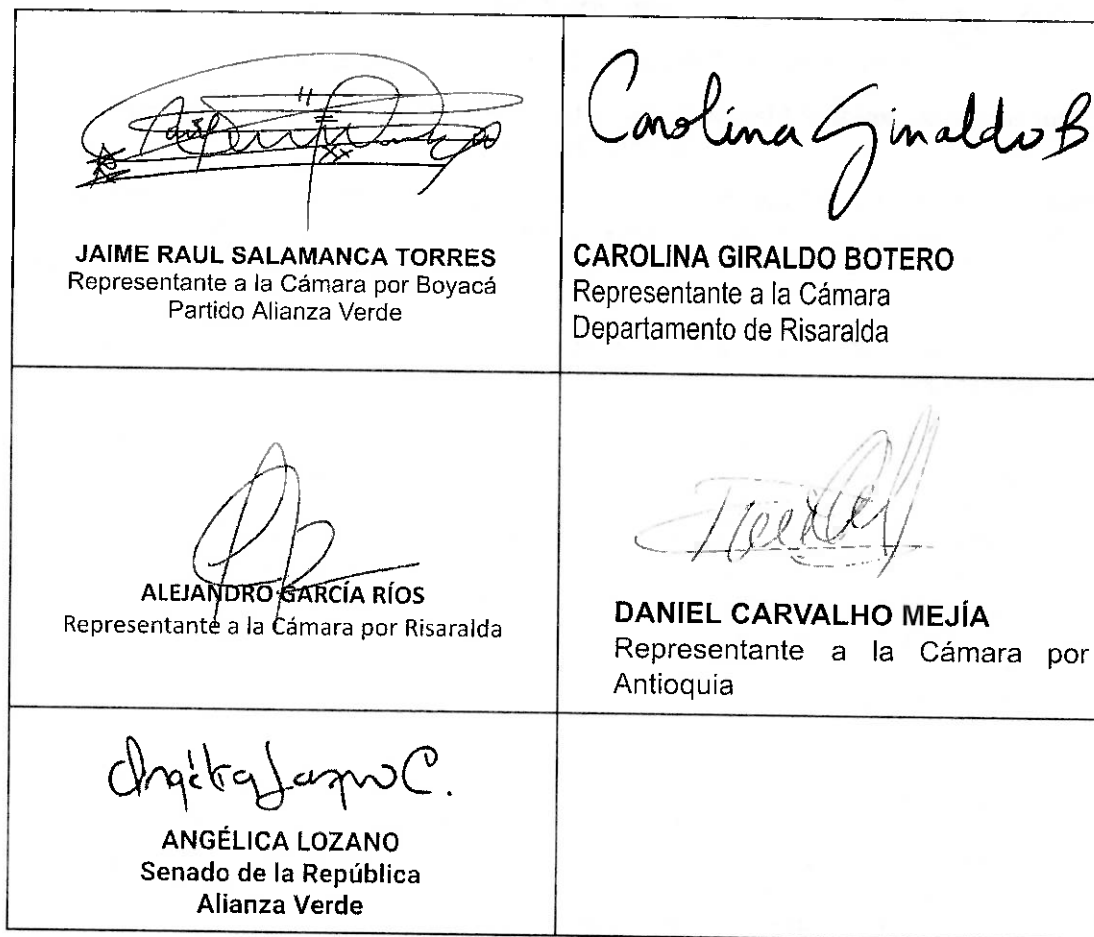 JAIME RAUL SALAMANCA TORRES
Representante a la Cámara por Boyacá
Partido Alianza Verde
Carolina Giraldo B
CAROLINA GIRALDO BOTERO
Representante a la Cámara
Departamento de Risaralda
ALEJANDRO GARCÍA RÍOS
Representante a la Cámara por Risaralda
DANIEL CARVALHO MEJÍA
Representante a la Cámara por
Antioquia
Angélica Lozano C.
ANGÉLICA LOZANO
Senado de la República
Alianza Verde